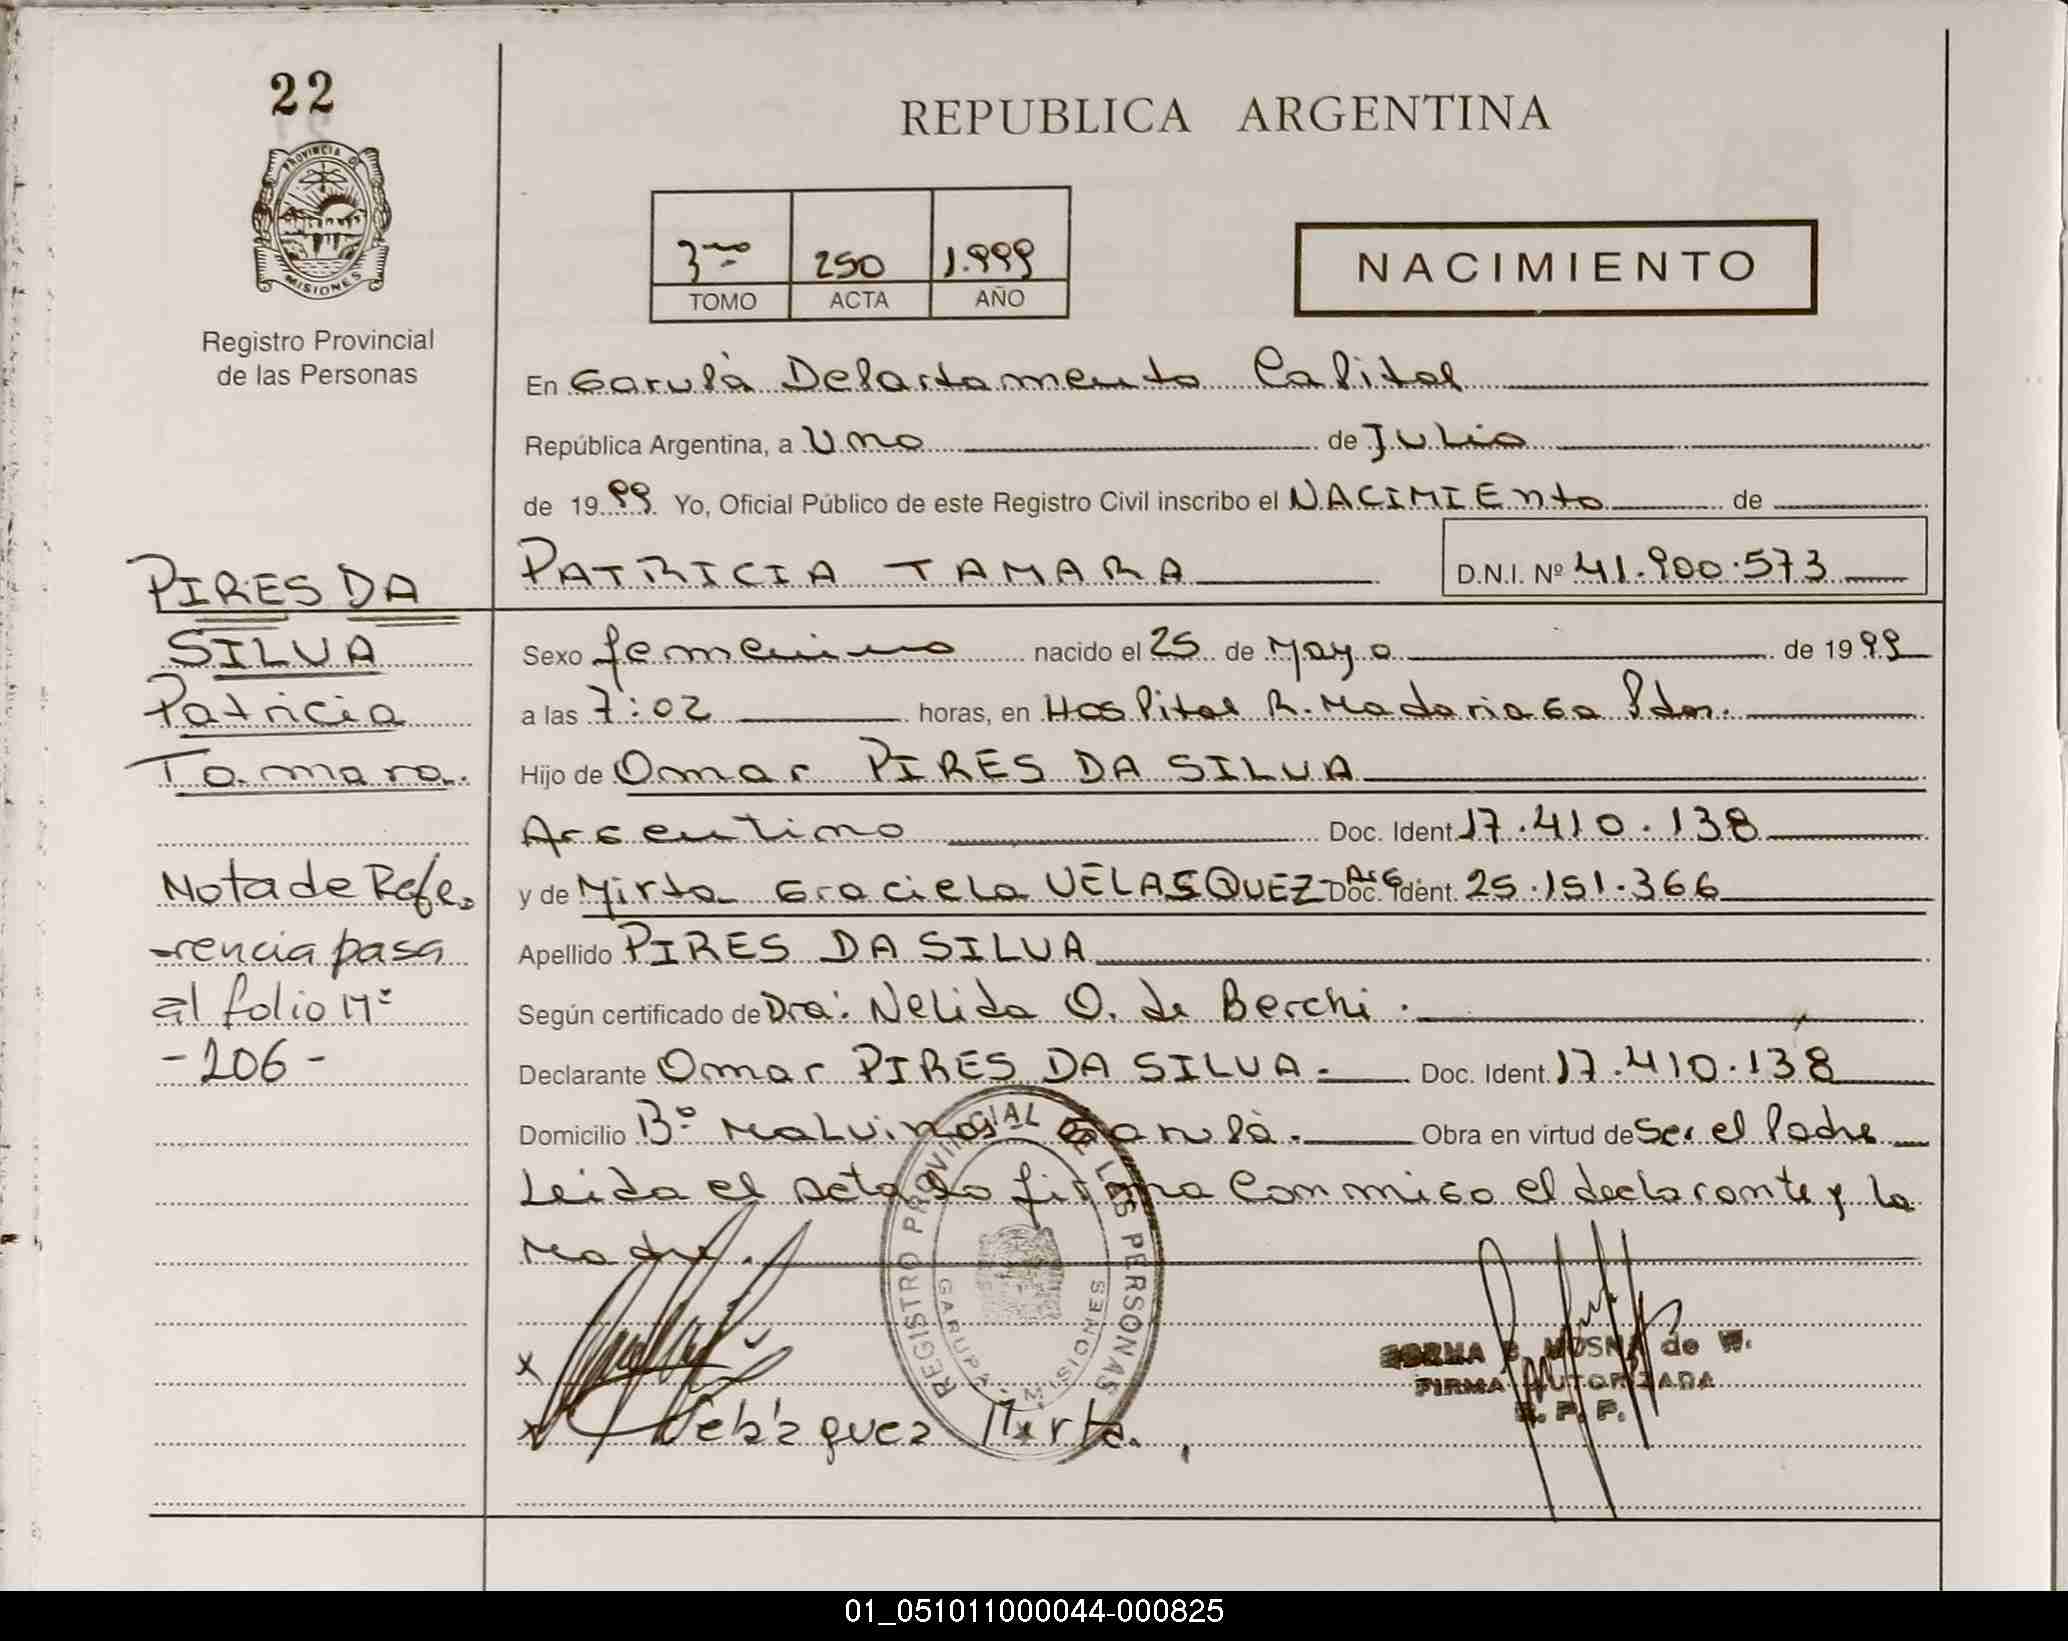 22
PROVINCIA DE
MISIONES
Registro Provincial
de las Personas
REPUBLICA ARGENTINA
3ro 250 1.999
TOMO ACTA AÑO
NACIMIENTO
En Garupà Departamento Capital
República Argentina, a Uno de Julio
de 1999 Yo, Oficial Público de este Registro Civil inscribo el NACIMIEnto de
PATRICIA TAMARA D.N.I. Nº 41.900.573
PIRES DA
SILVA
Patricia
Tamara.
Nota de Refe-
-rencia pasa
al folio Nº
-206-
Sexo femenino nacido el 25 de Mayo de 1999
a las 7:02 horas, en Hospital R. Madariaga Pdas.
Hijo de Omar PIRES DA SILVA
Argentino Doc. Ident. 17.410.138
y de Mirta Graciela VELASQUEZ- Arg. Doc. Ident. 25.151.366
Apellido PIRES DA SILVA
Según certificado de Dra: Nelida O. de Berchi.
Declarante Omar PIRES DA SILVA.- Doc. Ident. 17.410.138
Domicilio Bº Malvinas Garupà. Obra en virtud de Ser el Padre
Leida el acta la firma Conmigo el declarante y la
Madre.
REGISTRO PROVINCIAL DE LAS PERSONAS
GARUPA MISIONES
x
x Velázquez Mirta.
MOSNA de W.
FIRMA AUTORIZADA
R. P. P.
01_051011000044-000825